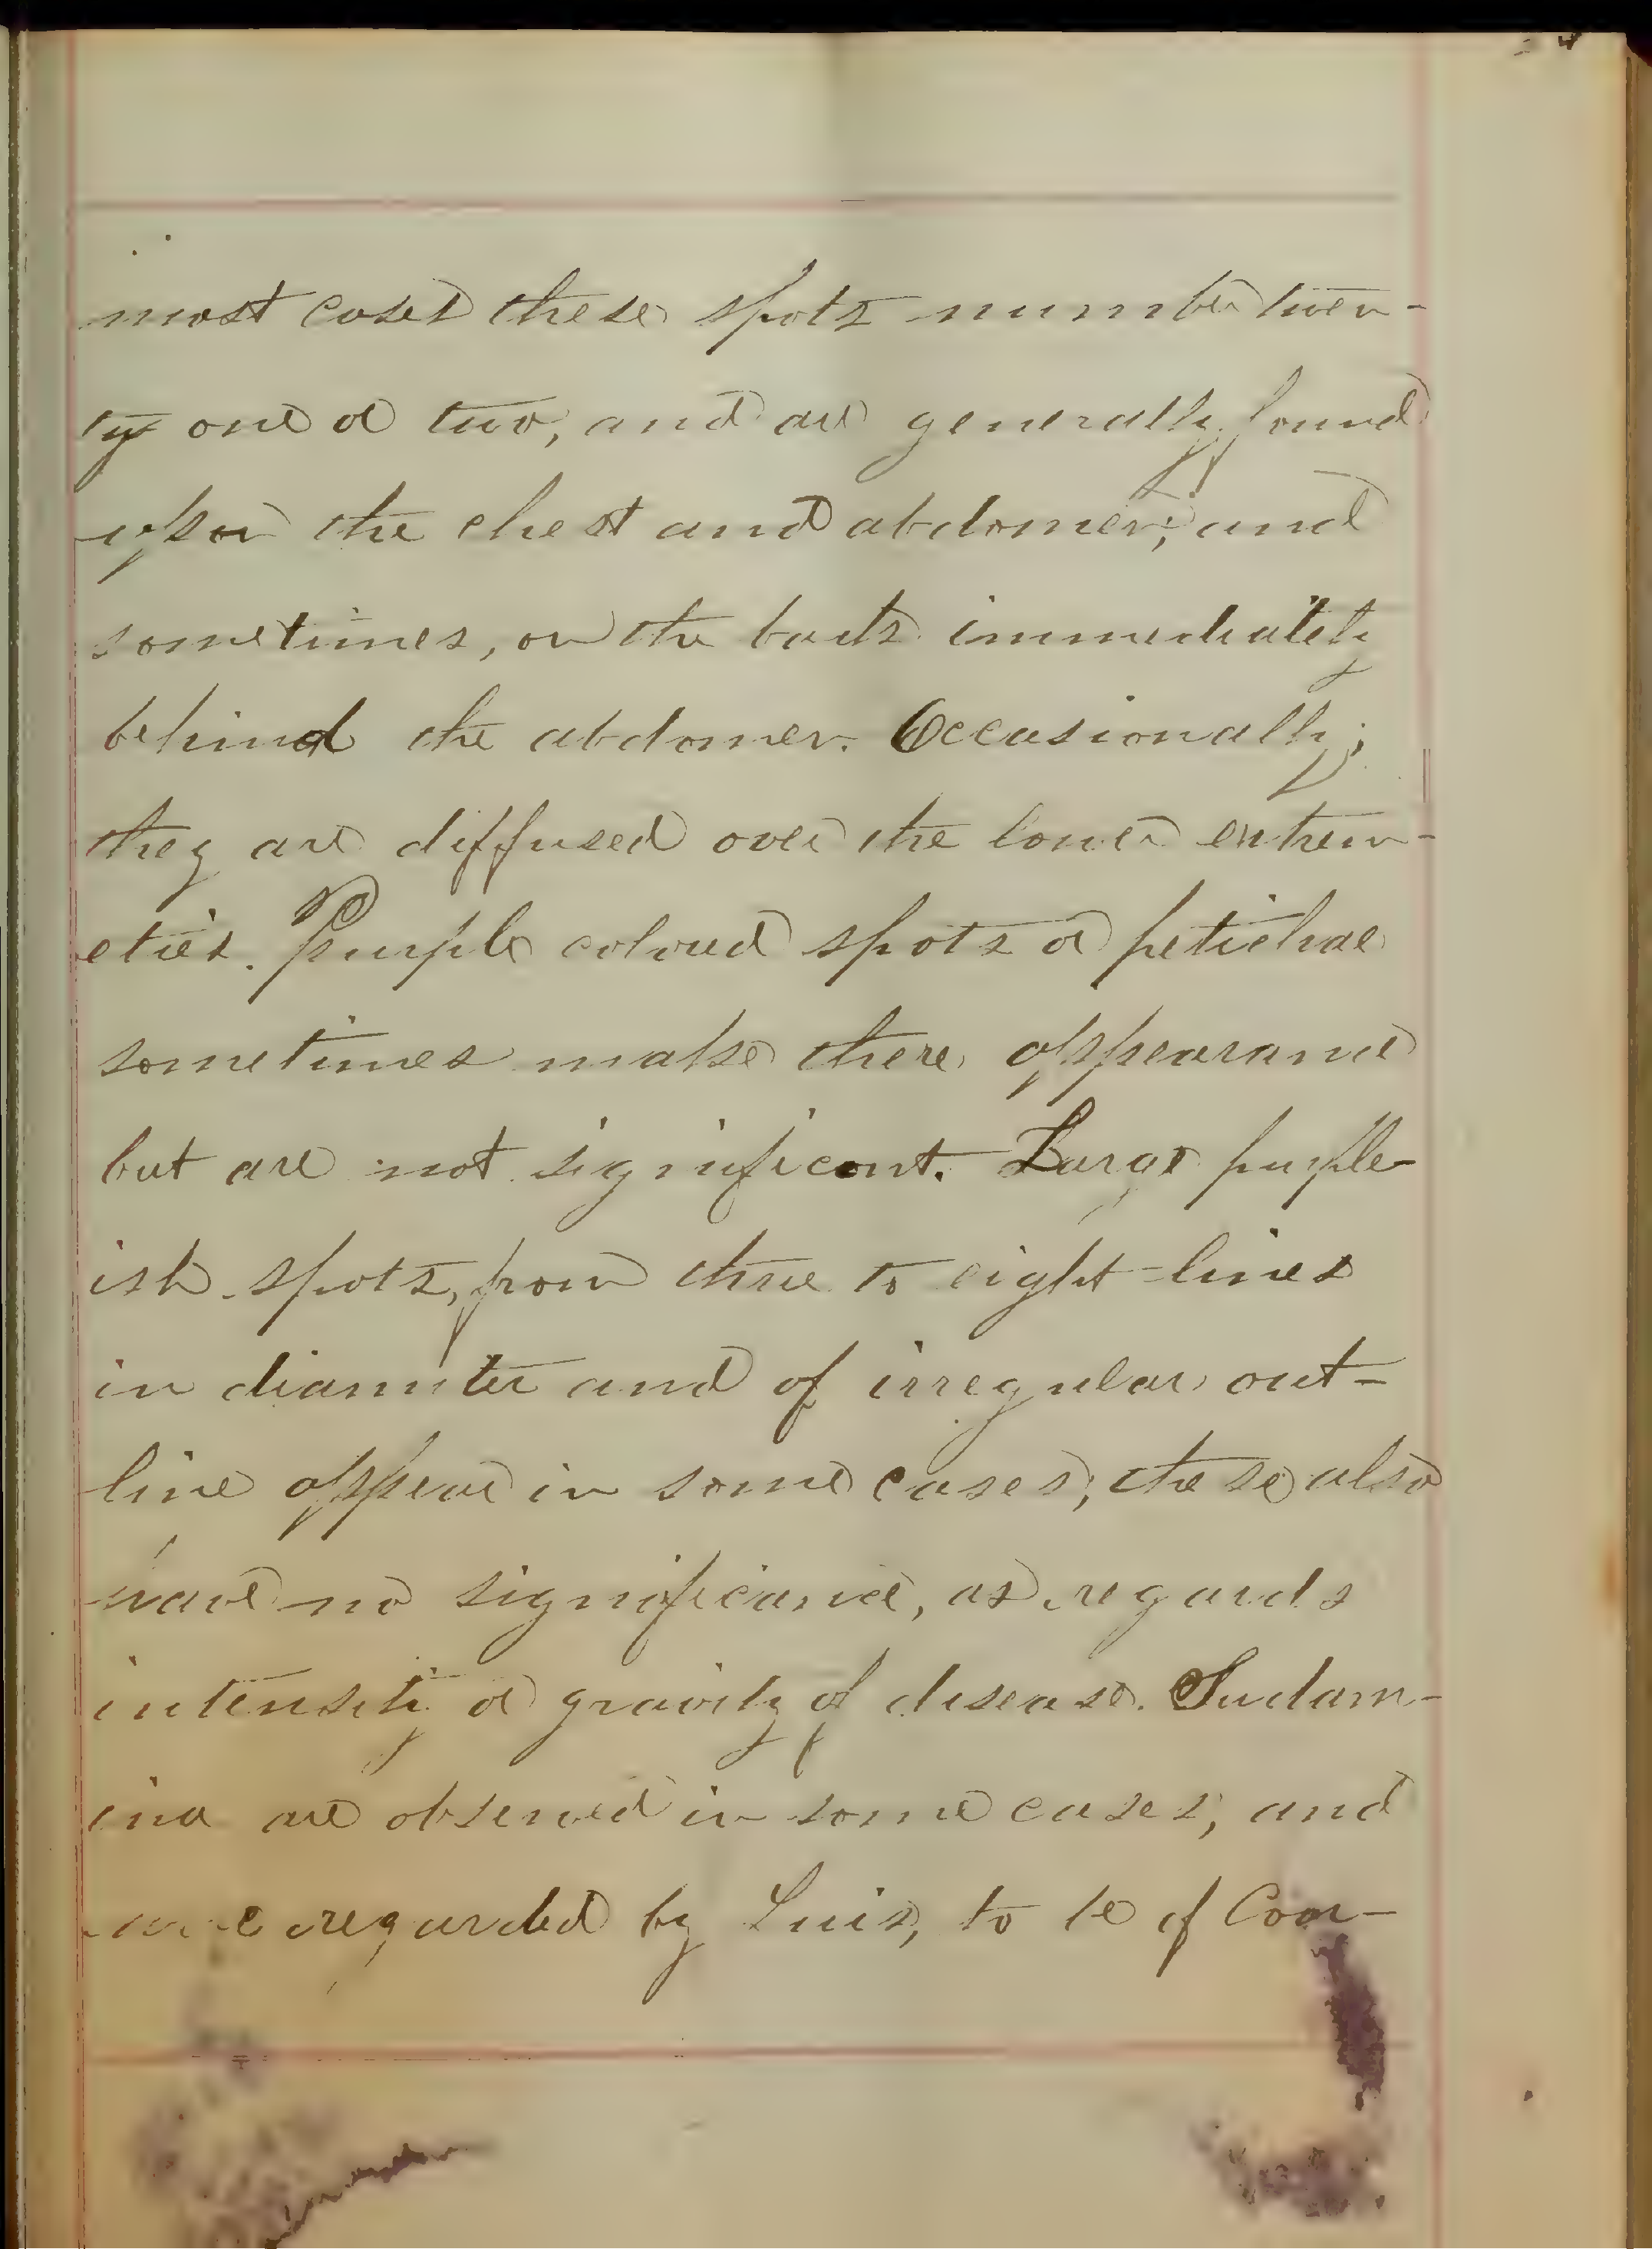 most cases these spots number twen-
ty one or two, and are generally found
upon the chest and abdomen; and
sometimes, on the back immediately
behind the abdomen. Occasionally;
they are diffused over the lower extrem-
eties. Purple colored spots or petichae
sometimes make there appearance
but are not significant. Large purple-
ish spots, from three to eight-lines
in diameter and of irregular out-
line appear in some cases; these also
have no significance, as regards
intensity or gravity of disease. Sudam-
ina are observed in some cases; and
are regarded by Luis, to be of Com-